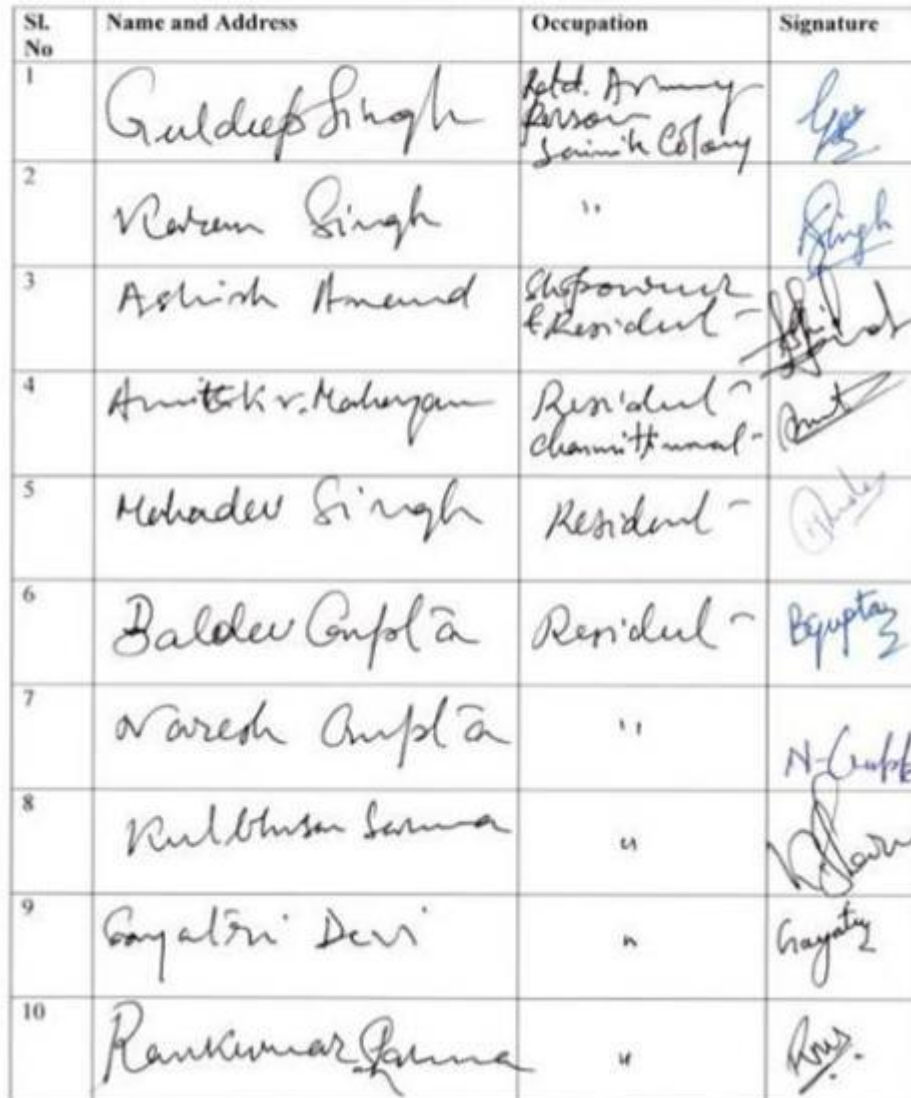 Sl. No Name and Address Occupation Signature
1 Guldeep Singh Retd. Army
Person
Sainik Colony
2 Karam Singh " Singh
3 Ashish Anand Shopowner
& Resident
4 Amit Kr. Mahajan Resident Amit
5 Mahadev Singh Resident
6 Baldev Gupta Resident BGupta
7 Naresh Gupta " N-Gupta
8 Kulbhusan Sarma "
9 Gayatri Devi " Gayatri
10 Ramkumar Sharma "